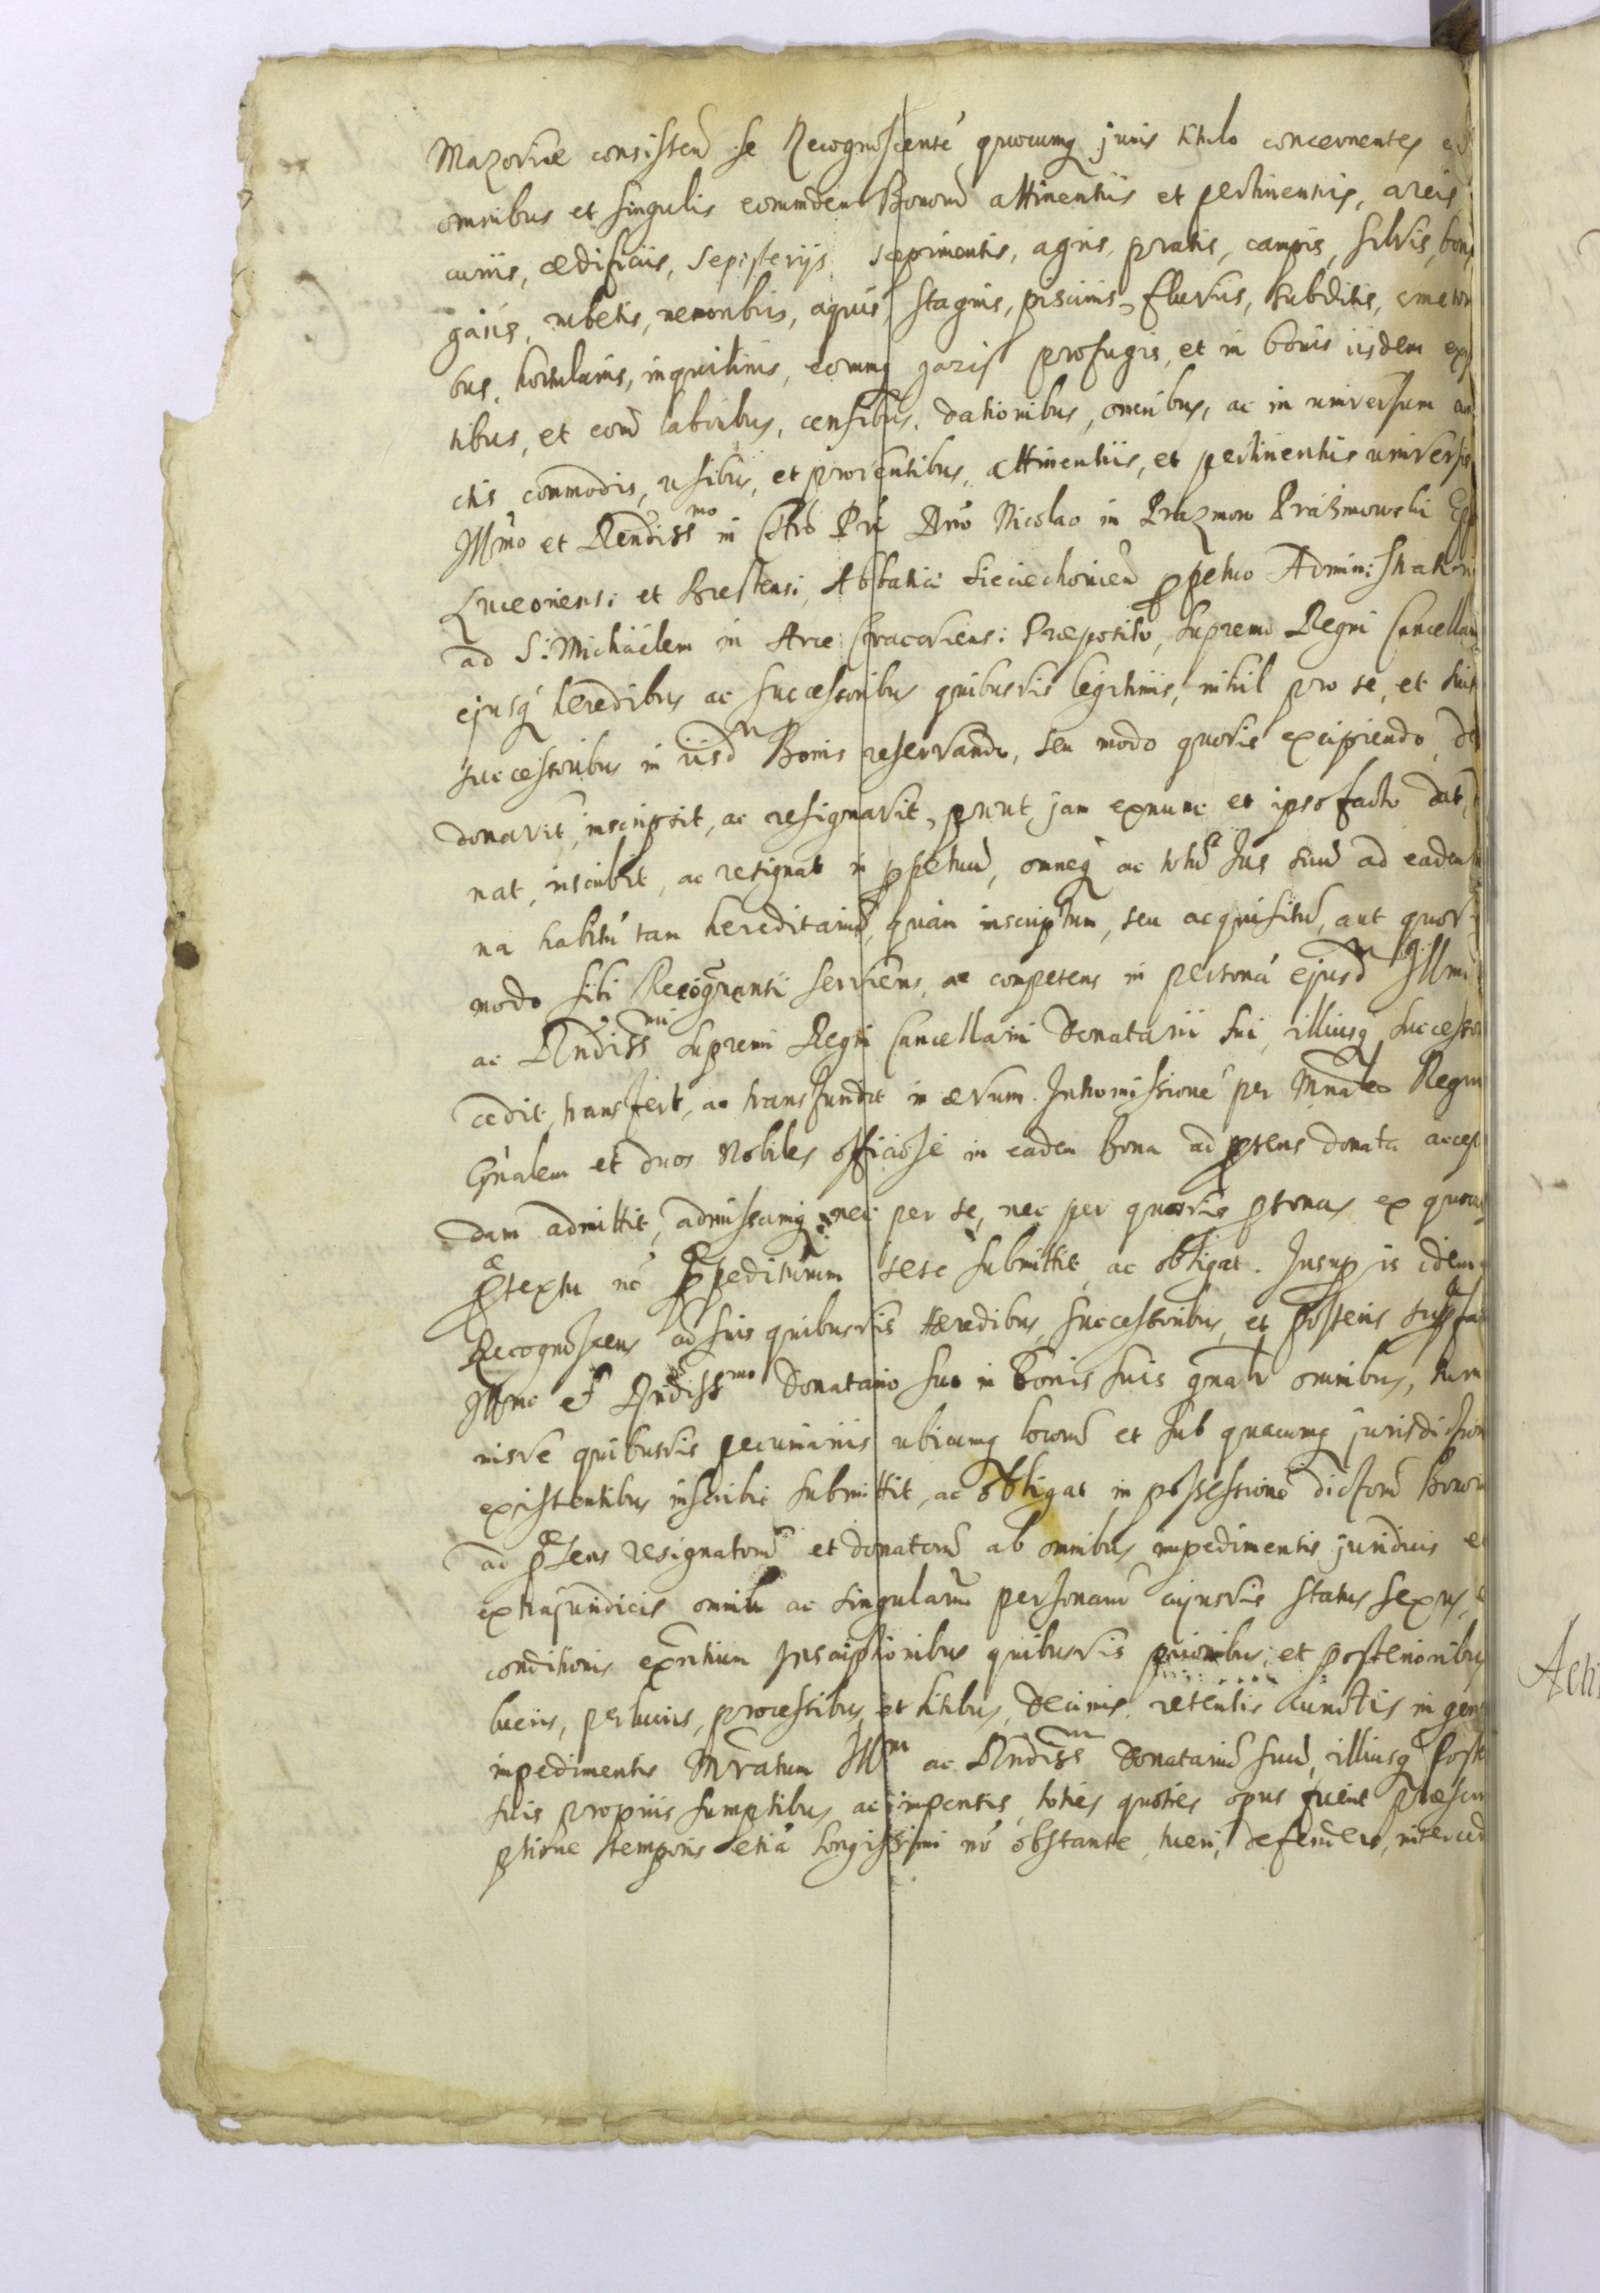 Mazoviæ consisteñ se Recognoscente quocumq juris titulo concernentes c
omnibus et singulis eorumdem Bonorũ attinentiis et pertinentiis, areis
curiis, ædificiis, sepisterijs sæpimentis, agris, pratis, campis, silvis, bor
gaiis, rubetis, nemoribus, aquis, stagnis, piscinis, fluviis, subditis, cmeton
bus, hortulanis, inquilinis, eorumq gazis profugis, et in bonis iisdem ex
tibus, et eorũ laboribus, censibus, dationibus, omnibus, ac in universum
ctis commodis, usibus, et proventibus, attinentiis, et pertinentiis universis
Illmo et Rendissmo in Chro Pri Dno Nicolao in Prazmow Prażmowski Epp
Luceoriensi et Brestensi, Abbatiæ Sieciechovien ppetuo Administratori
ad S: Michäelem in Arce Cracoviensi Præposito, Supremo Regni Cancellar
ejusq heredibus ac successoribus quibusvis legitimis, nihil pro se, et suis
successoribus in iisdm Bonis reservando, seu modo quovis excipiendo, de
donavit, inscripsit, ac resignavit, prout jam exnunc et ipso facto dat,
nat, inscribit, ac resignat in ppetuũ, omneq ac totũ Jus suũ ad eadem
na habitũ tam hereditariũ, quam inscriptum, seu acquisitũ, aut quovi
modo sibi Recognanti serviens, ac competens in personã ejusdm Illmi
ac Rndissmi Supremi Regni Cancellarii Donatarii sui, illiusq successor
cedit, transfert, ac transfundit in ævum. Intromissionẽ per Mnrlem Regni
Gnalem et duos Nobiles officiose in eadem Bona ad pæsens donata accep
dam admittit, admissamq nec per se, nec per quasvis psonas ex quovis
pætextu nõ ppeditũrum sese submittit, ac obligat. Insup is idemq
Recognoscens cũ suis quibusvis hæredibus, successoribus, et posteris
Illmo et Rndissmo Donatario suo in Bonis suis gnalr omnibus, sum
nisve quibusvis pecuniariis ubicumq locorũ et sub quacumq jurisdiction
existentibus inscribit submittit, ac obligat in possessione dictorũ Bonoru
ad pæsens resignatorũ et donatorũ ab omnibus impedimentis juridicis et
extrajuridicis omniũ ac singularum personarũ cujusvis status sexus, e
conditionis exñtium Inscriptionibus quibusvis prioribus et posterioribus
lucris, perlucris, processibus, et litibus, decimis retentis cunctis in gen
impedimentis Mratum Illm ac Rndissm Donatariũ suũ, illiusq poste
suis propriis sumptibus, ac impensis, toties quoties opus fuerit præscri
ptione temporis etiã longissimi nõ obstante, tueri, defendere, interced